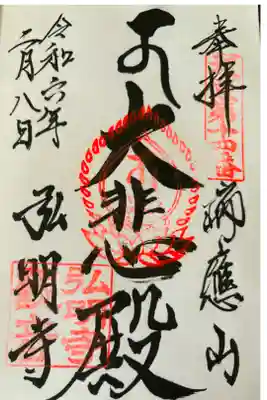 奉拝
瑞應山
大悲殿
弘明寺
令和六年
二月八日
弘明寺